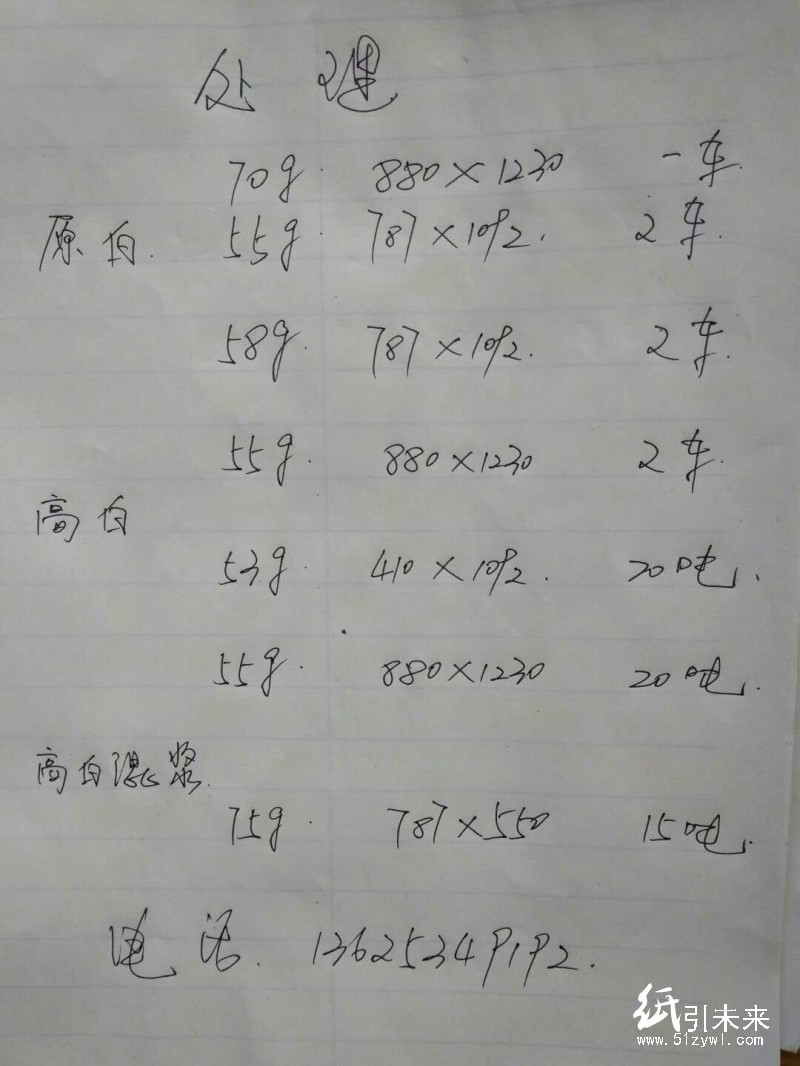 处理
70g. 880×1230 一车.
原白. 55g. 787×1092. 2车.
58g. 787×1092. 2车.
55g. 880×1230 2车.
高白
53g. 410×1092. 20吨.
55g. 880×1230 20吨.
高白混浆.
75g. 787×550 15吨.
电话. 13625349192.
纸引未来
www.51zywl.com